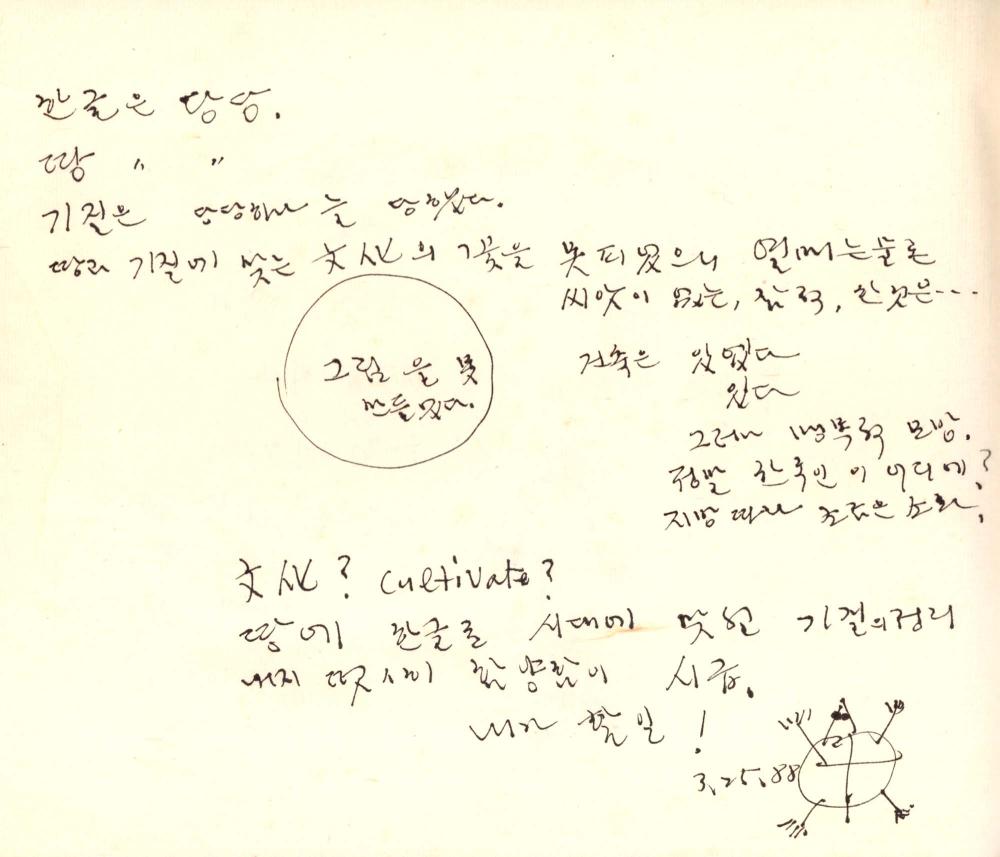 한글은 당당.
땅 〃 〃
기질은 당당하나 늘 당하였다.
땅과 기질에 맞는 文化의 꽃을 못피웠으니 열매는물론
씨앗이 없는, 잠력, 한것은...
그림을 못
만들었다.
건축은 있었다
있다
그러나 행복적 모방.
정말 한국인이 어디에?
지방따라 조금은 소화,
文化? cultivate?
땅에 한글로 시대에 맞헌 기질의정리
내지 떳시 함양함이 시급.
내가 할일!
3.25.88